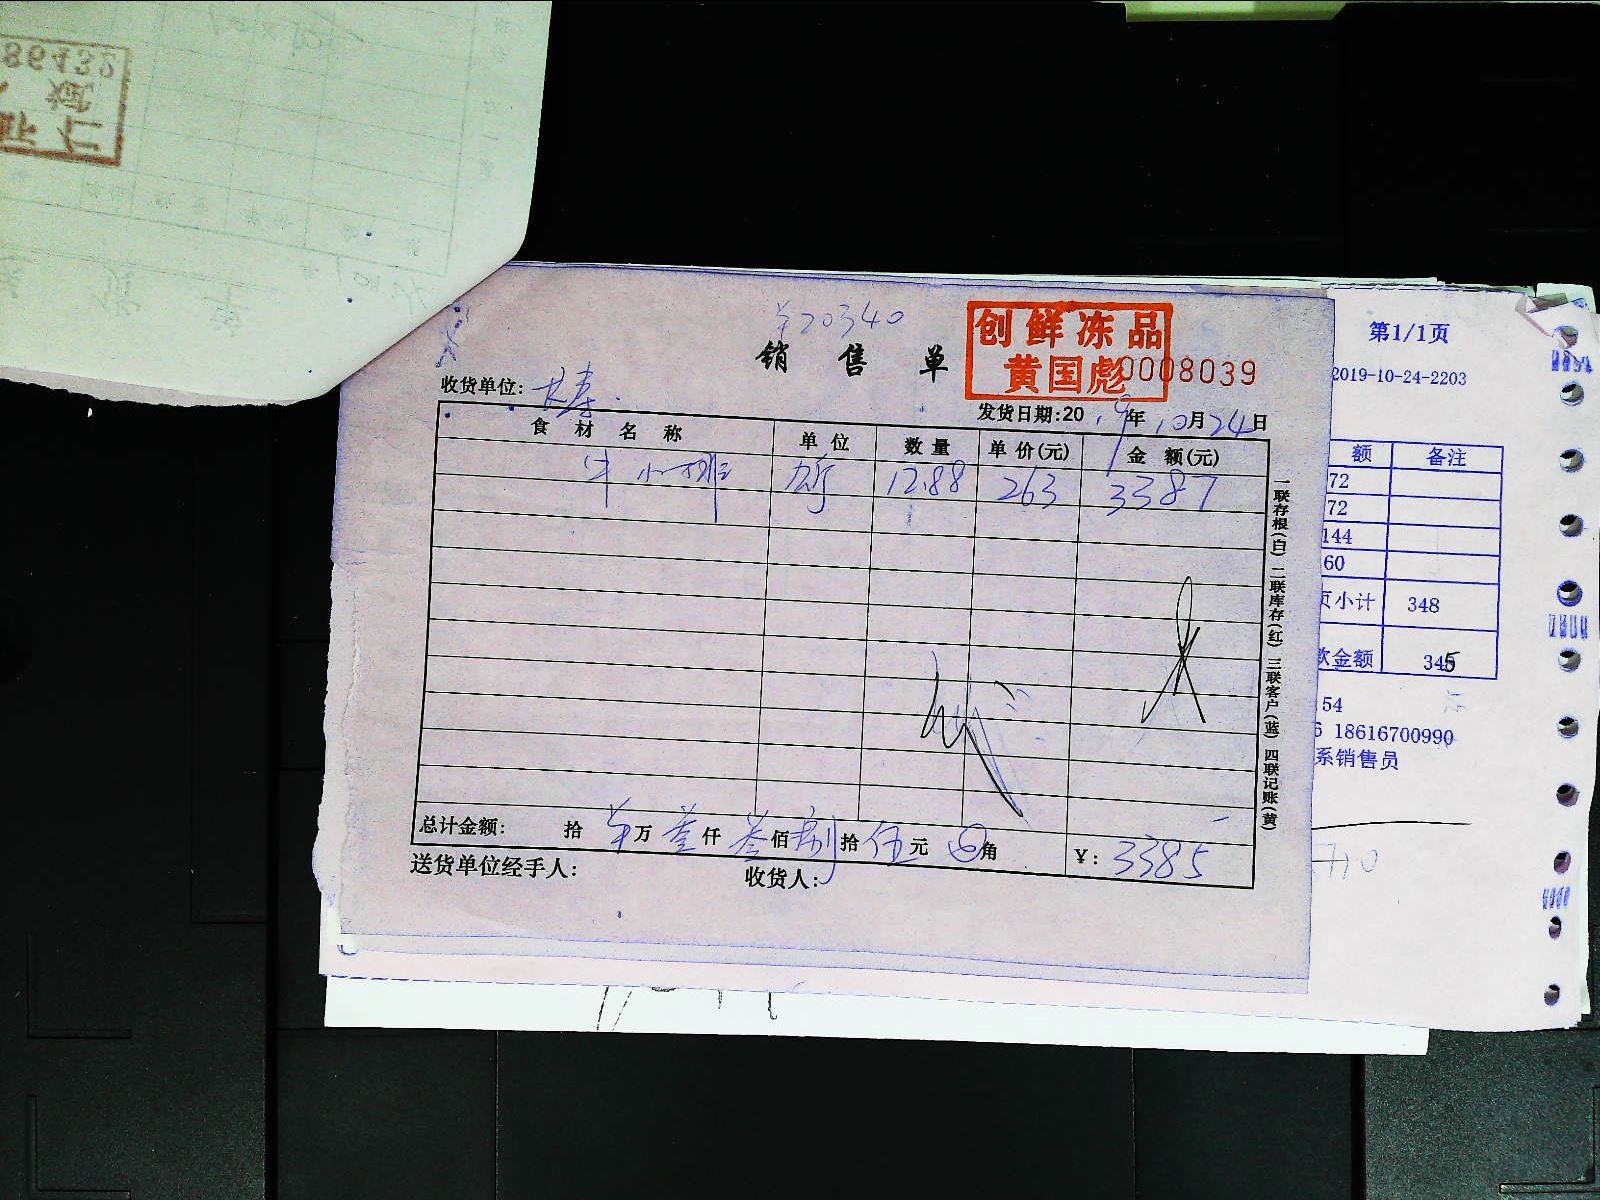 20340
销售单
创鲜冻品
黄国彪
0008039
收货单位:
发货日期:2019年10月24日
食材名称 单位 数量 单价(元) 金额(元)
牛小排 斤 12.88 263 3387
一联存根(白) 二联库存(红) 三联客户(蓝) 四联记账(黄)
总计金额: 拾 万叁仟叁佰捌拾伍元 角 ¥: 3385
送货单位经手人: 收货人:
第1/1页
2019-10-24-2203
额 备注
72
72
144
60
页小计 348
款金额 345
54
18616700990
系销售员
86432